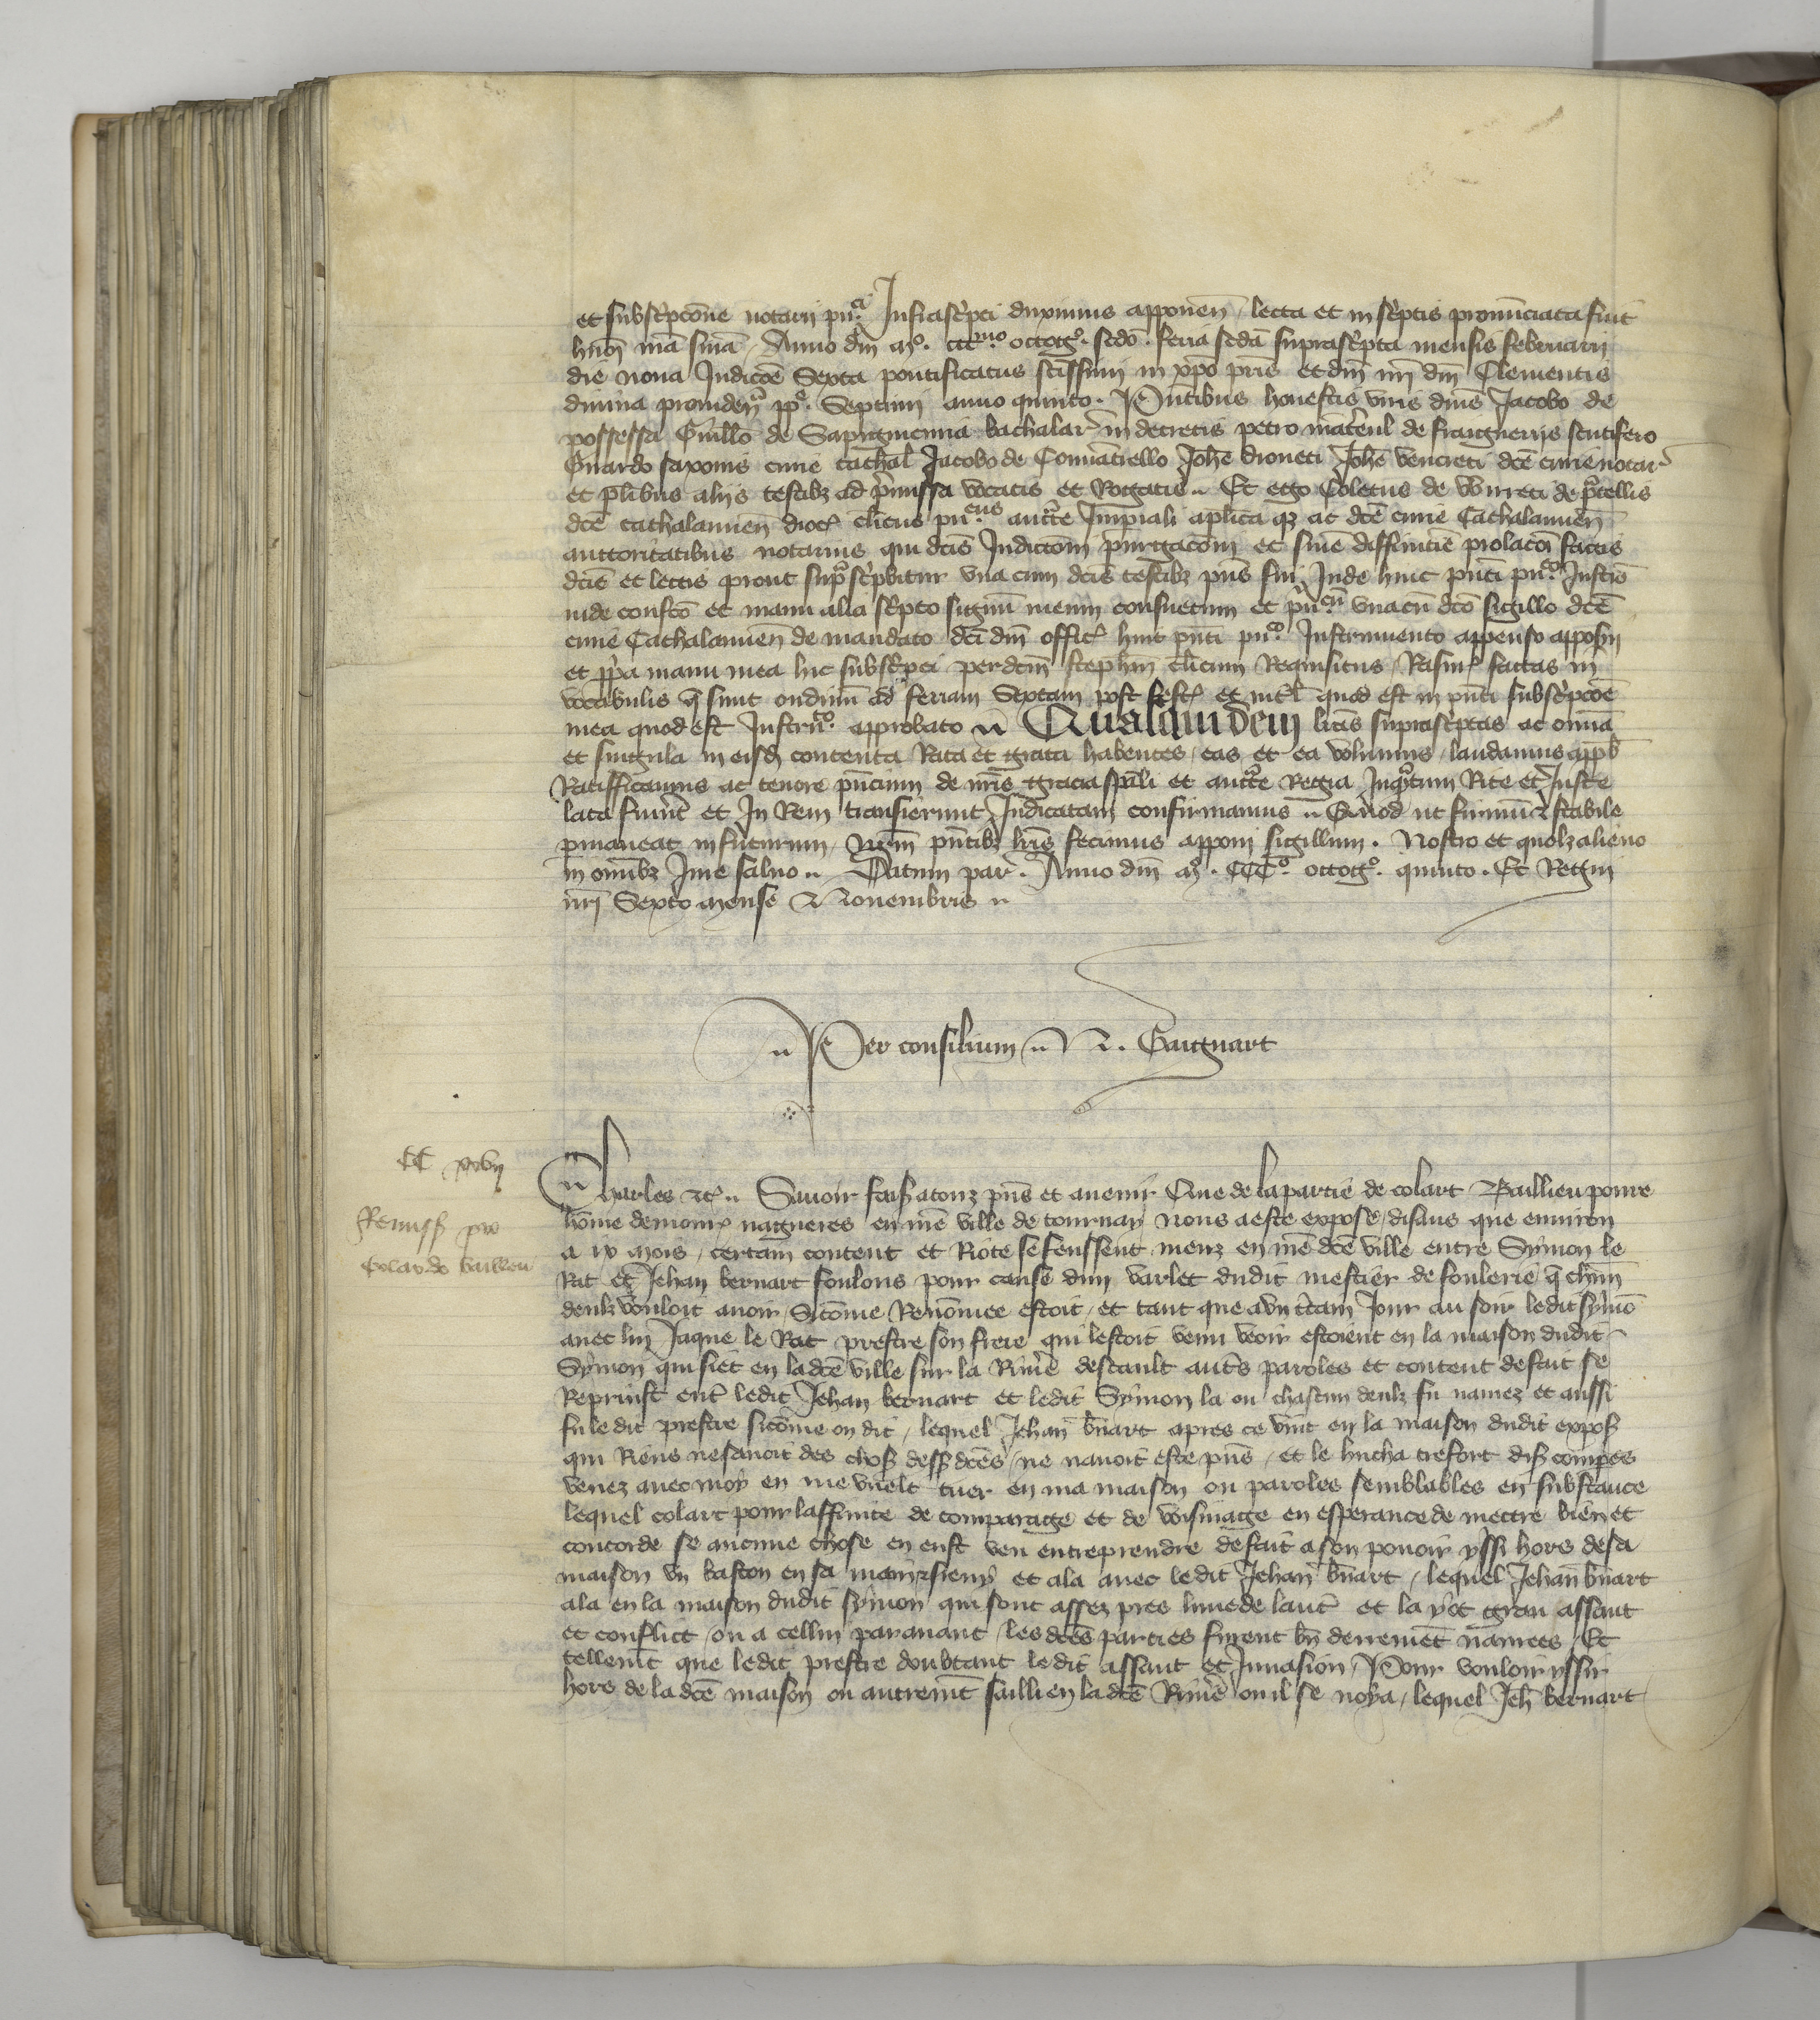 et subsc'pcōne notarii pu.ci Infrasc'pti duximus apponen̄ / lecta et in sc'ptis pronūciata fuit
hmōi n̄ra sn̄ia / Anno dn̄i mo. ccc.mo octog.o sc̄do. feria sc̄da suprasc'pta mensis februarii
die nona Indicōe Sexta pontificatus sc̄issimi in xp̄o pr̄is et dn̄i nr̄i dn̄i Clementis
diuina prouiden.a pp.e Septimi anno quinto. Pn̄tibus honestis viris dn̄is Jacobo de
possessa Guill̄o de Sapigmenia bachalar' in decretis petro de fraignerijs scutifero
Girardo saxonis curie cathal̄ Jacobo de Comiatrello Joh̄e droneti Joh̄e dc̄e curie notar'
et pl̄ibus alijs testibz ad p'missa vocatis et Rogatis .. Et ego Coletus de
dc̄e cathalaunen̄ dioc' cl̄icus pu.cus auct̄te Imp̄iali ap̄lica qz ac dc̄e curie Cathalaunen̄
auttoritatibus notarius qui dc̄is Indictōni purgacōni et sn̄ie diffinitie prolacōi factis
dc̄is et lectis prout sup.a sc'pbitur vna cum dc̄is testibz pn̄s fui Inde huic pn̄ti pu.co Instro
inde confc̄o et manu alia sc'pto signū meum consuetum et pu.cū vnacū dc̄o sigillo dc̄e
curie Cathalaunen̄ de mandato dc̄i dn̄i offic' huic pn̄ti pu.co Instrumento appenso apposui
et pp̄a manu mea hic subsc'psi per dc̄m steph̄m cl̄icum Requisitus / Rasur' factas in
vocabulis q̄ sunt ondrini ad feriam Sextam post fest' et int̄l' quod est in pn̄ti subsc'pcōe
mea quod est Instru.to approbato .. Quasquidem litt̄as suprasc'ptas ac omīa
et singula in eisd̄ contenta Rata et grata habentes / eas et ea volumus / laudamus app̄b
Ratifficamus ac tenore pn̄cium de nr̄is gracia sp̄ali et auct̄te Regia Inq.atum Rite et Juste
lata fuer̄t et In Rem transierunt Iudicatam confirmamus .. Quod ut firmū & stabile
pmaneat in futurum / Nr̄m pn̄tibz litt̄is fecimus apponi sigillum. Nostro et quolz alieno
in omībz Jure saluo .. Datum par'. Anno dn̄i mo. CCCo. octog.o quinto. Et Regni
nr̄i Sexto mense Nouembris ..
.. Per consilium .. N. Gaignart
CC xxvij
Remiss' pro
Colardo baillieu
Charles &c' .. Sauoir faiss' a touz pn̄s et auenir Que de la partie de colart Baillieu poure
hōme demour' nagueres en nr̄e ville de tournay nous a este expose / disans que enuiron
a iv mois / certain content et Riote se feussent meuz en nr̄e dc̄e ville entre Symon le
Rat et Jehan bernart foulons pour cause dun varlet dudit mestier de foulerie q̄ chūn
deulz vouloit auoir / Sicōme Renōmee estoit / et tant que a vn c̄tain Jour au soir ledit symō
auec lui Jaque le Rat prestre son frere qui lestoit venu veoir estoient en la maison dudit
Symon qui siet en la dc̄e ville sur la Riuie'e descault aut̄s paroles et content de fait se
Reprinst ent̄ ledit Jehan bernart et ledit Symon la ou chascun deulz fu naurez et aussi
fu le dit prestre sicōme on dit / lequel Jehan b̄nart apres ce vint en la maison dudit expos'
qui Riens ne sauoit des chos' dess' dc̄es / ne nauoit este pn̄s / et le hucha tresfort dis' comp̄es
venez auec moy en me vuelt tuer en ma maison ou paroles semblables en substance
lequel colart pour laffinite de comparage et de voisinage en esperance de mettre bien et
concorde se aucune chose en eust veu entreprendre de fait a son pouoir yssi hors de sa
maison vn baston en sa main et ala auec ledit Jehan b̄nart / lequel Jehan b̄nart
ala en la maison dudit symon qui sont assez pres lune de laut̄ et la y ot gran assaut
et conflict / ou a cellui parauant / les dc̄es parties furent bn̄ derremēt naurees / Et
tellemt̄ que ledit prestre doubtant ledit assaut et Inuasion / Pour vouloir yssir
hors de la dc̄e maison ou autremt̄ sailli en la dc̄e Riuie'e ou il se noya / lequel Jeh̄ bernart